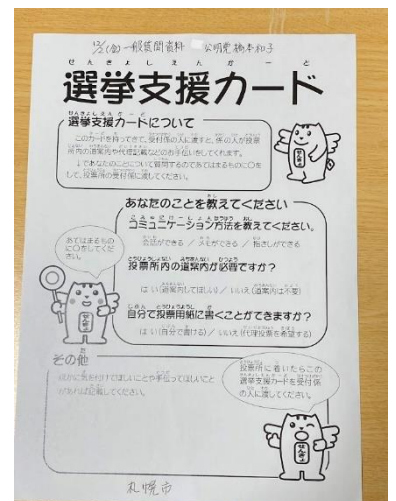 12/5(金)一般質問資料 公明党橋本和子
せんきょしえんかーど
選挙支援カード
せんきょしえんかーど
選挙支援カードについて
このカードを持ってきて、受付係の人に渡すと、係の人が投票
所内の道案内や代理記載などのお手伝いをしてくれます。
↓であなたのことについて質問するのであてはまるものに○を
して、投票所の受付係に渡してください。
あなたのことを教えてください
コミュニケーション方法を教えてください。
会話ができる / メモができる / 指さしができる
投票所内の道案内が必要ですか?
はい(道案内してほしい) / いいえ(道案内は不要)
自分で投票用紙に書くことができますか?
はい(自分で書ける) / いいえ(代理投票を希望する)
あてはまるもの
に○をしてくだ
さい。
その他
ほかに気を付けてほしいことや手伝ってほしいこと
があれば記載してください。
投票所に着いたらこの
選挙支援カードを受付係
の人に渡してください。
札幌市